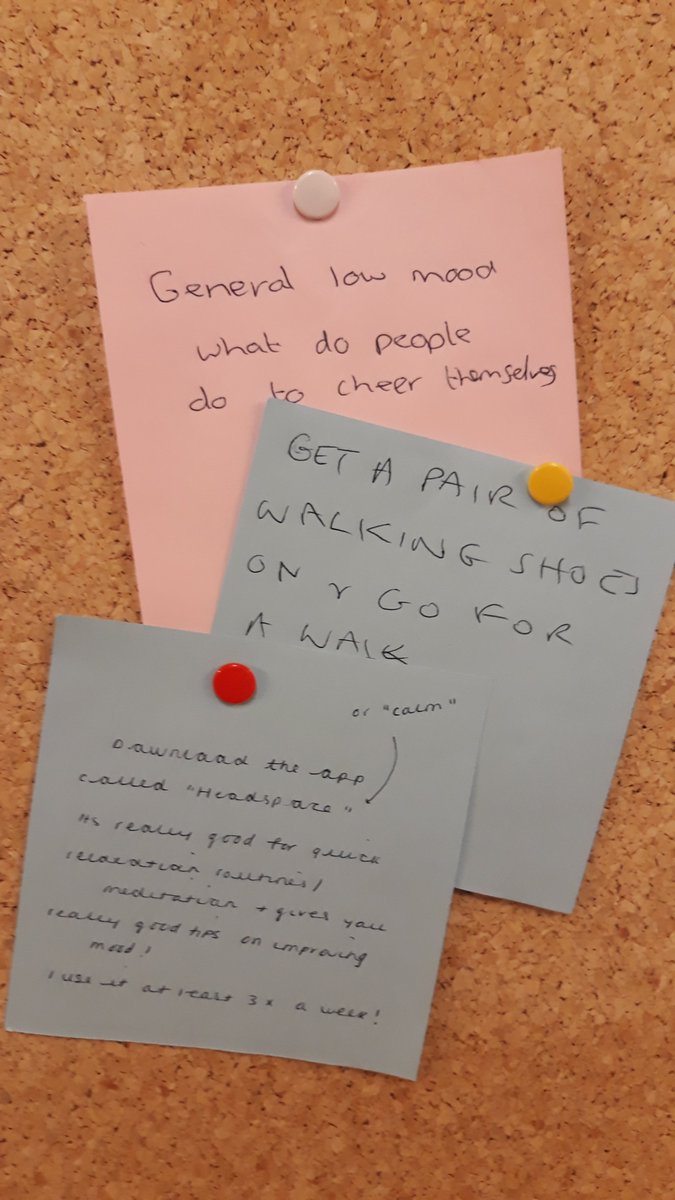 General low mood
what do people
do to cheer themselves
GET A PAIR OF
WALKING SHOES
ON & GO FOR
A WALK
or "calm"
Download the app
called "Headspace"
its really good for quick
relaxation routines/
meditation + gives you
really good tips on improving
mood!
I use it at least 3x a week!